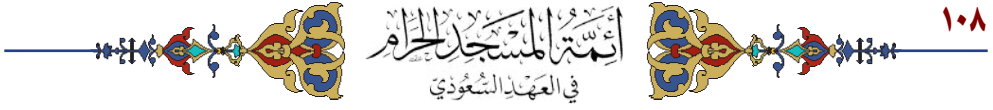 ١٠٨
أئمة المسجد الحرام
في العهد السعودي